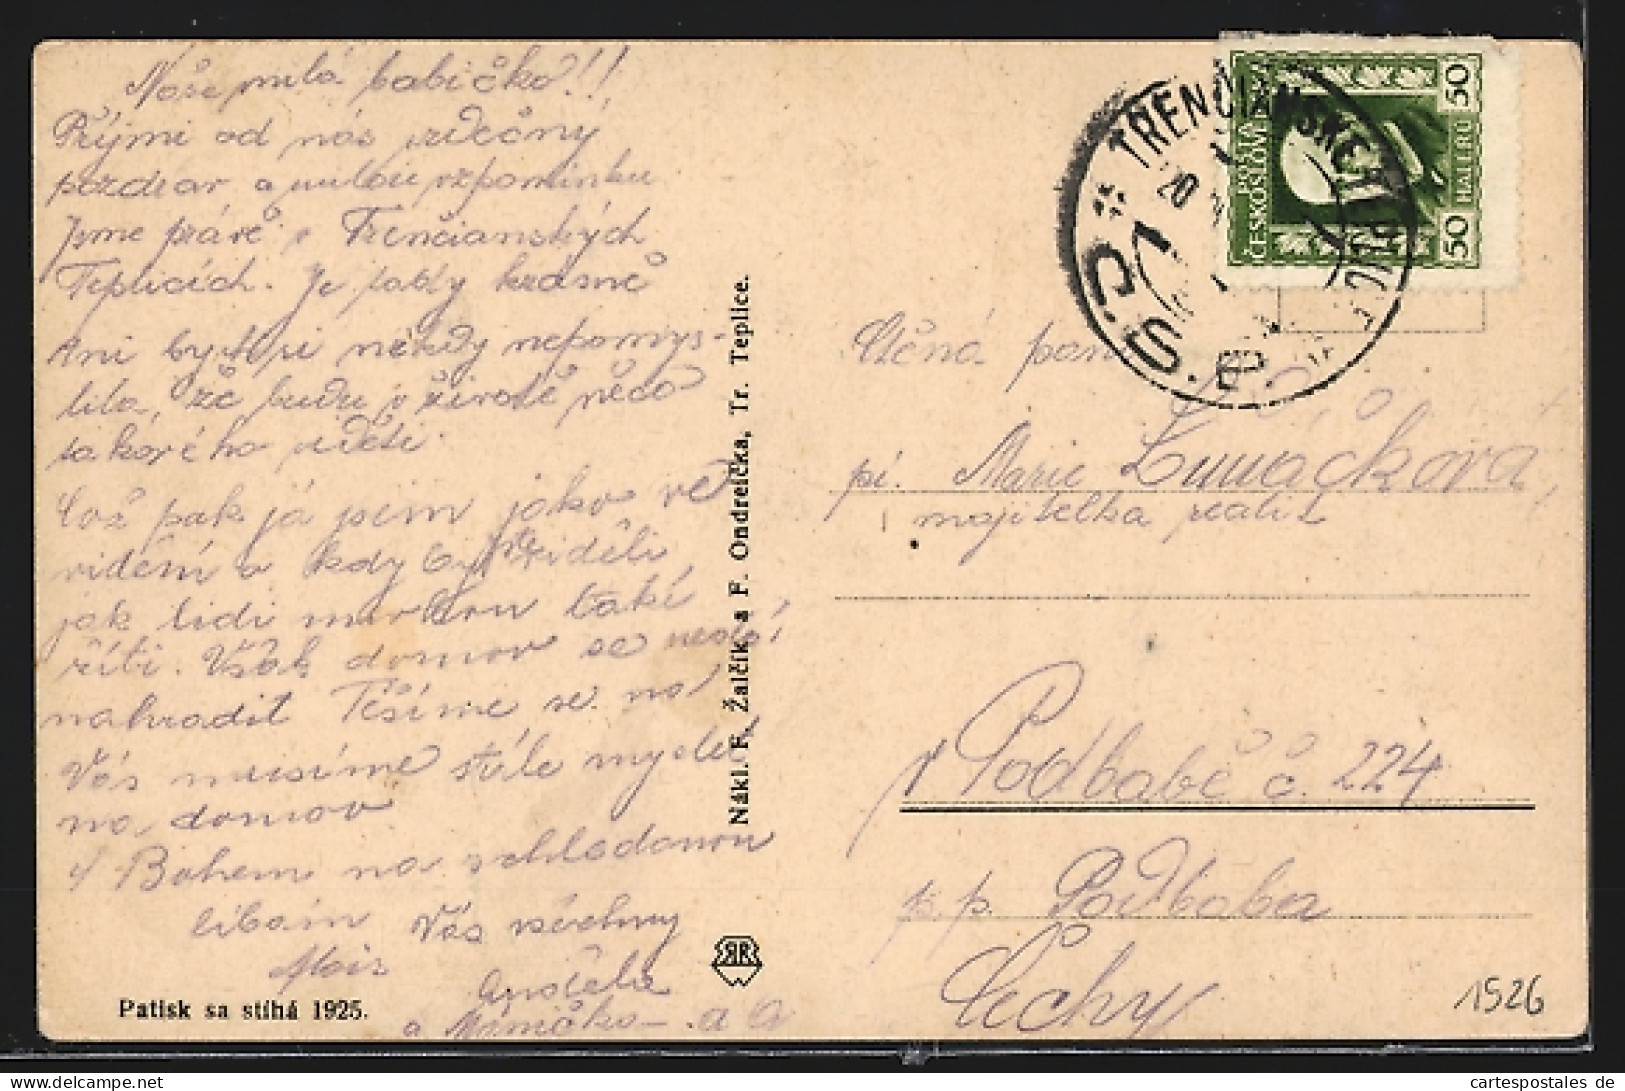 Naše milá babičko!!
Přijmi od nás srdečný
pozdrav a milou vzpomínku
Jsme právě v Trenčianských
Teplicích. Je tady krásně
Ani bych si někdy nepomys-
lila, že budu v životě něco
takového viděti.
Což pak já jsem jako ve
vidění a kdy by
jak lidi
říti. Však domov se nedá
nahradit Těšíme se na
Vás musíme stále myslet
na domov
S Bohem na shledanou
líbám Vás všechny
Andělka
a Mánička
Patisk sa stíhá 1925.
Nákl. F. Žalčík a F. Ondreička, Tr. Teplice.
POŠTA
ČESKOSLOVENSKÁ
50 HALÉŘŮ 50
TRENČIANSKE TEPLICE
Č.S.P.
20
Ctěná paní
pí. Marie Lunáčková
majitelka realit
v Podbabě č. 224
p. p. Podbaba
Čechy
1526
cartespostales de